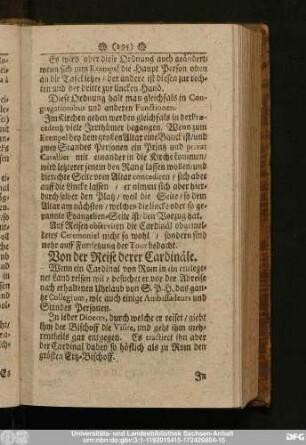 (295)
Es wird aber diese Ordnung auch geändert/
wenn sich zum Exempel die Haupt Person oben
an die Tafel setzet/ der andere ist diesen zur rech-
ten und der dritte zur lincken-Hand.
Diese Ordnung hält man gleichfals in Con-
gregationibus und anderen Functionen.
Im Kirchen gehen werden gleichfals in der Præ-
cedentz viele Irrthümer begangen. Wenn zum
Exempel bey dem grossen Altar eine Banck ist/ und
zwey Standes Personen ein Printz und privat
Cavallier mit einander in die Kirche kommen/
wird letzterer jenem den Rang lassen wollen und
die rechte Seite vom Altar concediren/ sich aber
auff die lincke lassen / er nimmt sich aber hier-
durch selber den Platz/ weil die Seite/ so dem
Altar am nähsten/ welches die lincke oder so ge-
nannte Evangelien-Seite ist/ den Vorzug hat.
Auf Reisen observiren die Cardinäl obgemel-
detes Ceremoniel nicht so wohl / sondern sind
mehr auff Fortsetzung der Tour bedacht.
Von der Reise derer Cardinäle.
Wenn ein Cardinal von Rom in ein entlege-
nes Land reisen will/ besuchet er vor der Abreise
nach erhaltenen Uhrlaub von S. P. H. das gan-
tze Collegium, wie auch einige Ambassadeurs und
Standes Personen.
In jeder Dioeces, durch welche er reiset/ giebt
ihm der Bischoff die Visite, und geht ihm mehr-
rentheils gar entgegen. Es tractiret ihn aber
der Cardinal dabey so höflich als zu Rom den
grösten Ertz-Bischoff.
In
Universitäts- und Landesbibliothek Sachsen-Anhalt
urn:nbn:de:gbv:3:1-1192015415-172426804-15
DFG